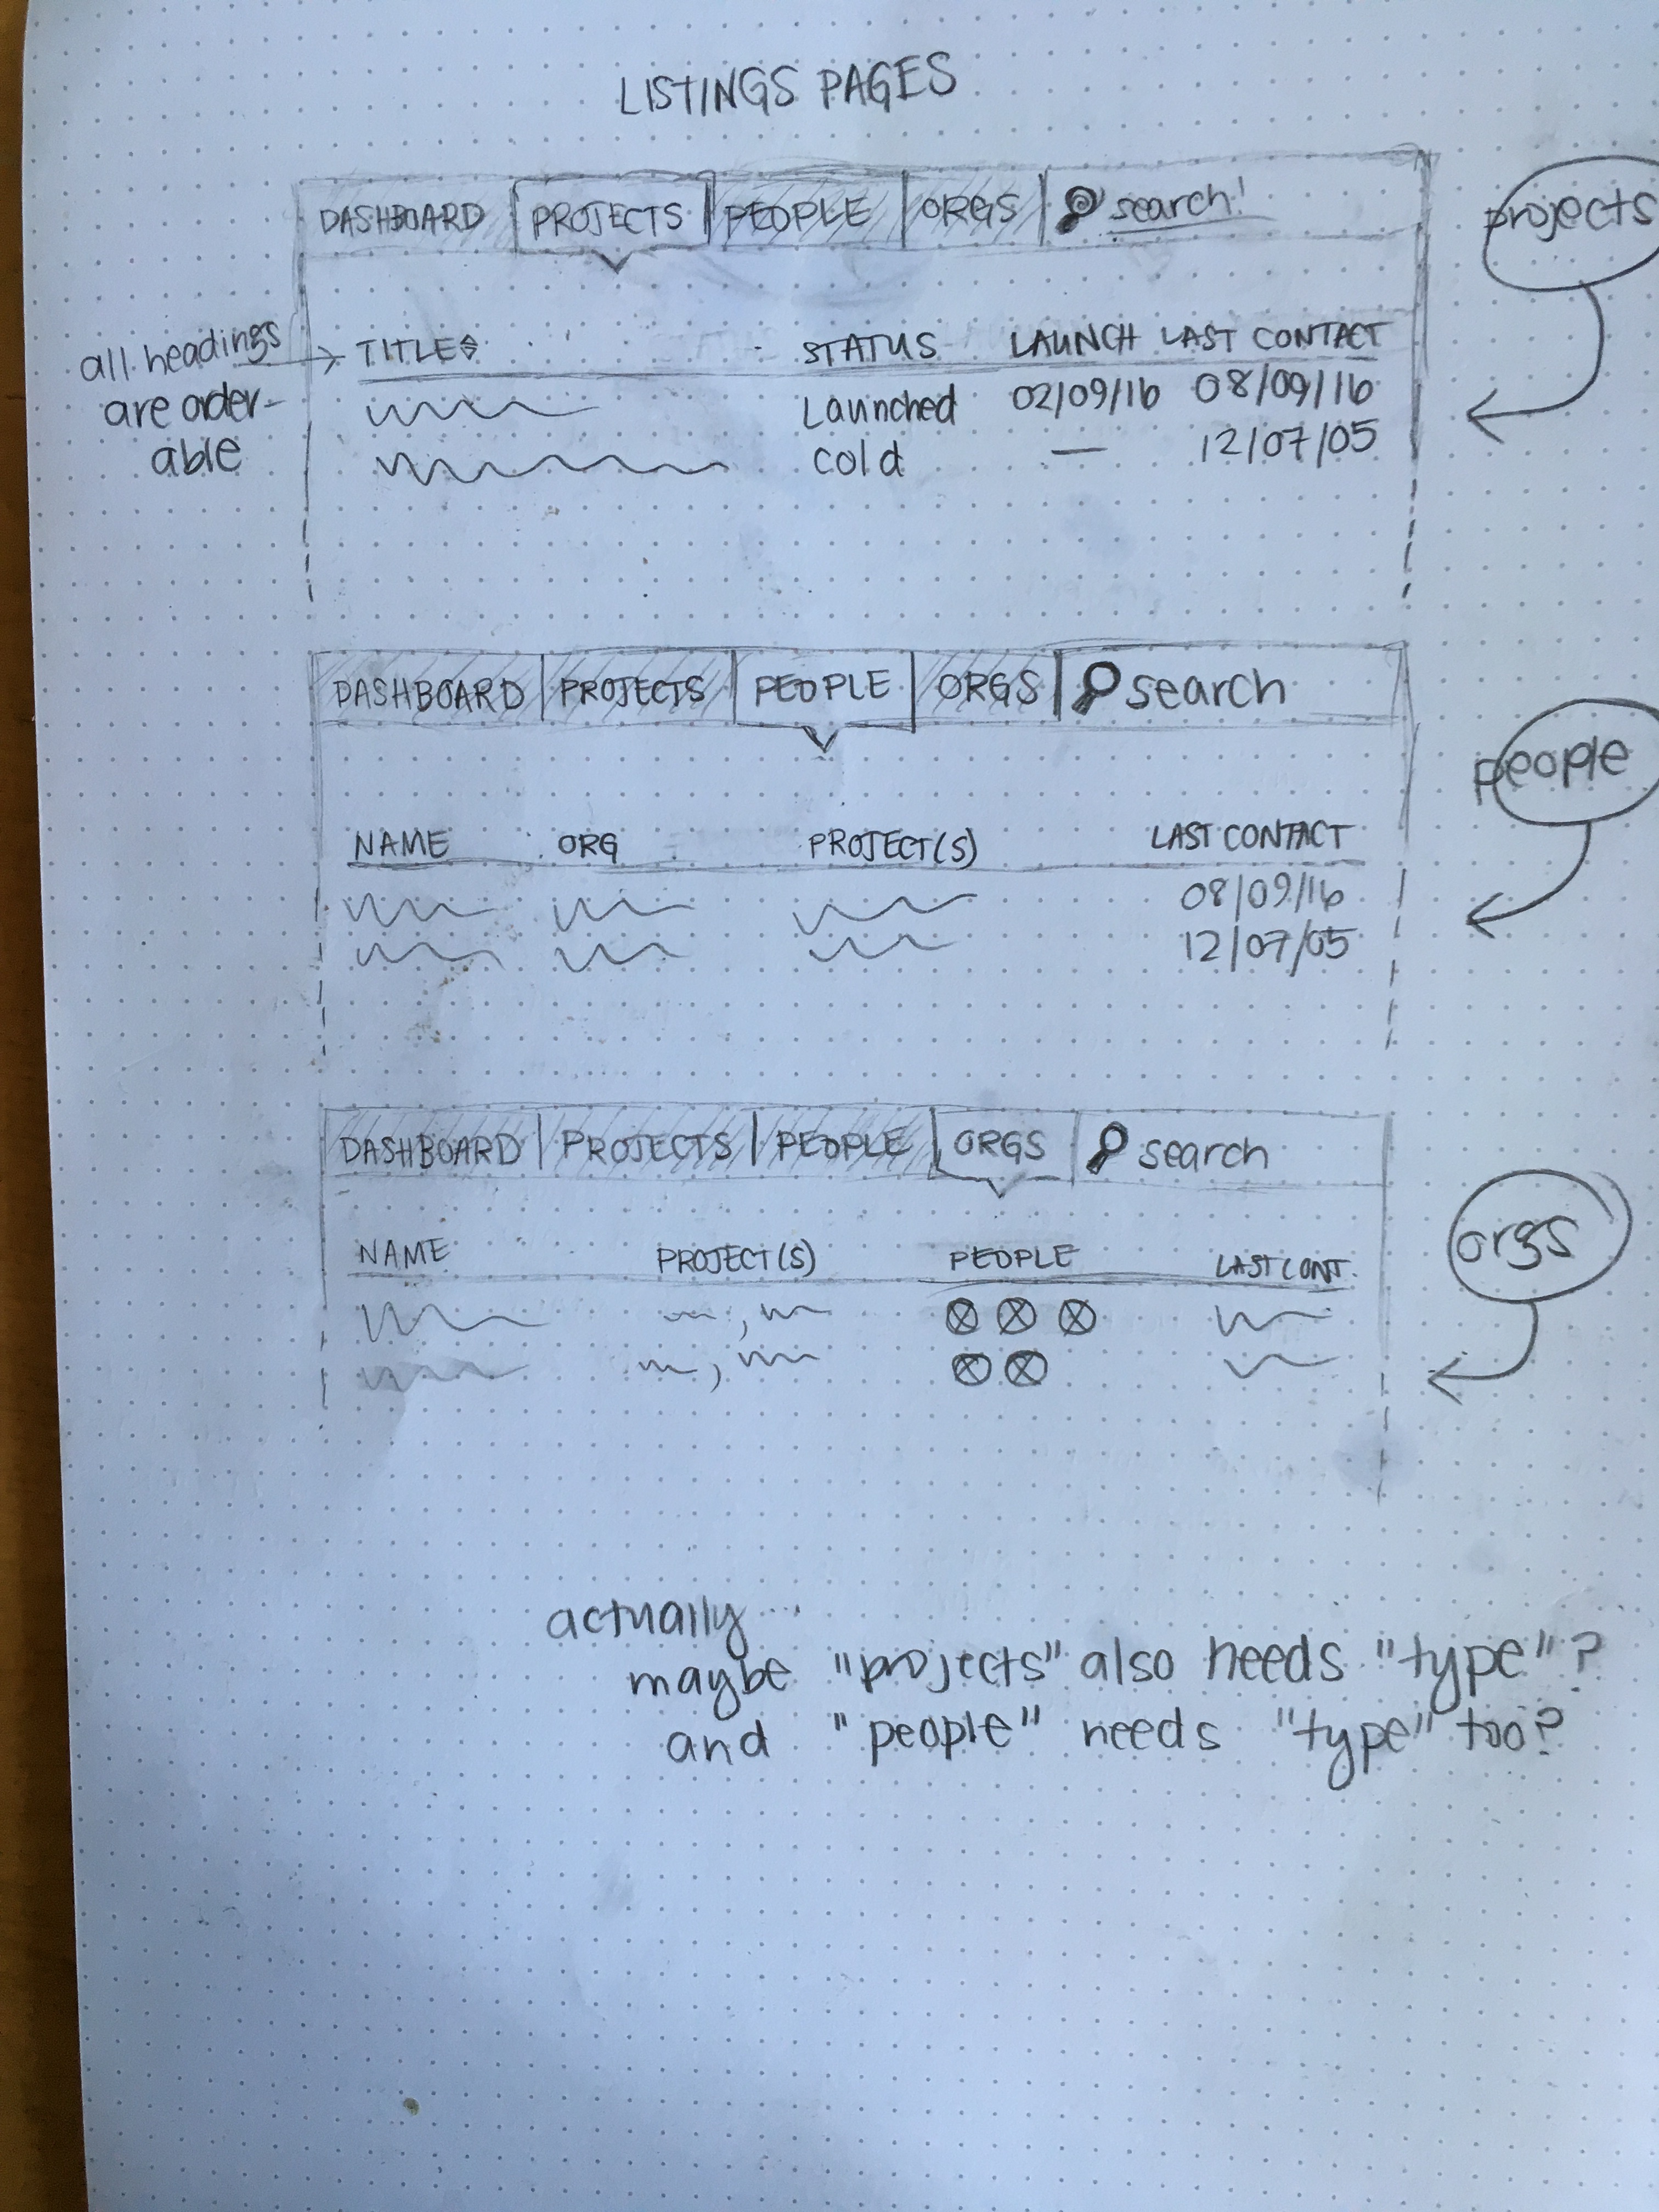 LISTINGS PAGES
DASHBOARD PROJECTS PEOPLE ORGS search!
projects
all headings are order-able
TITLE STATUS LAUNCH LAST CONTACT
Launched 02/09/16 08/09/16
cold — 12/07/05
DASHBOARD PROJECTS PEOPLE ORGS search
people
NAME ORG PROJECT(S) LAST CONTACT
08/09/16
12/07/05
DASHBOARD PROJECTS PEOPLE ORGS search
orgs
NAME PROJECT(S) PEOPLE LAST CONT.
actually...
maybe "projects" also needs "type"?
and "people" needs "type" too?